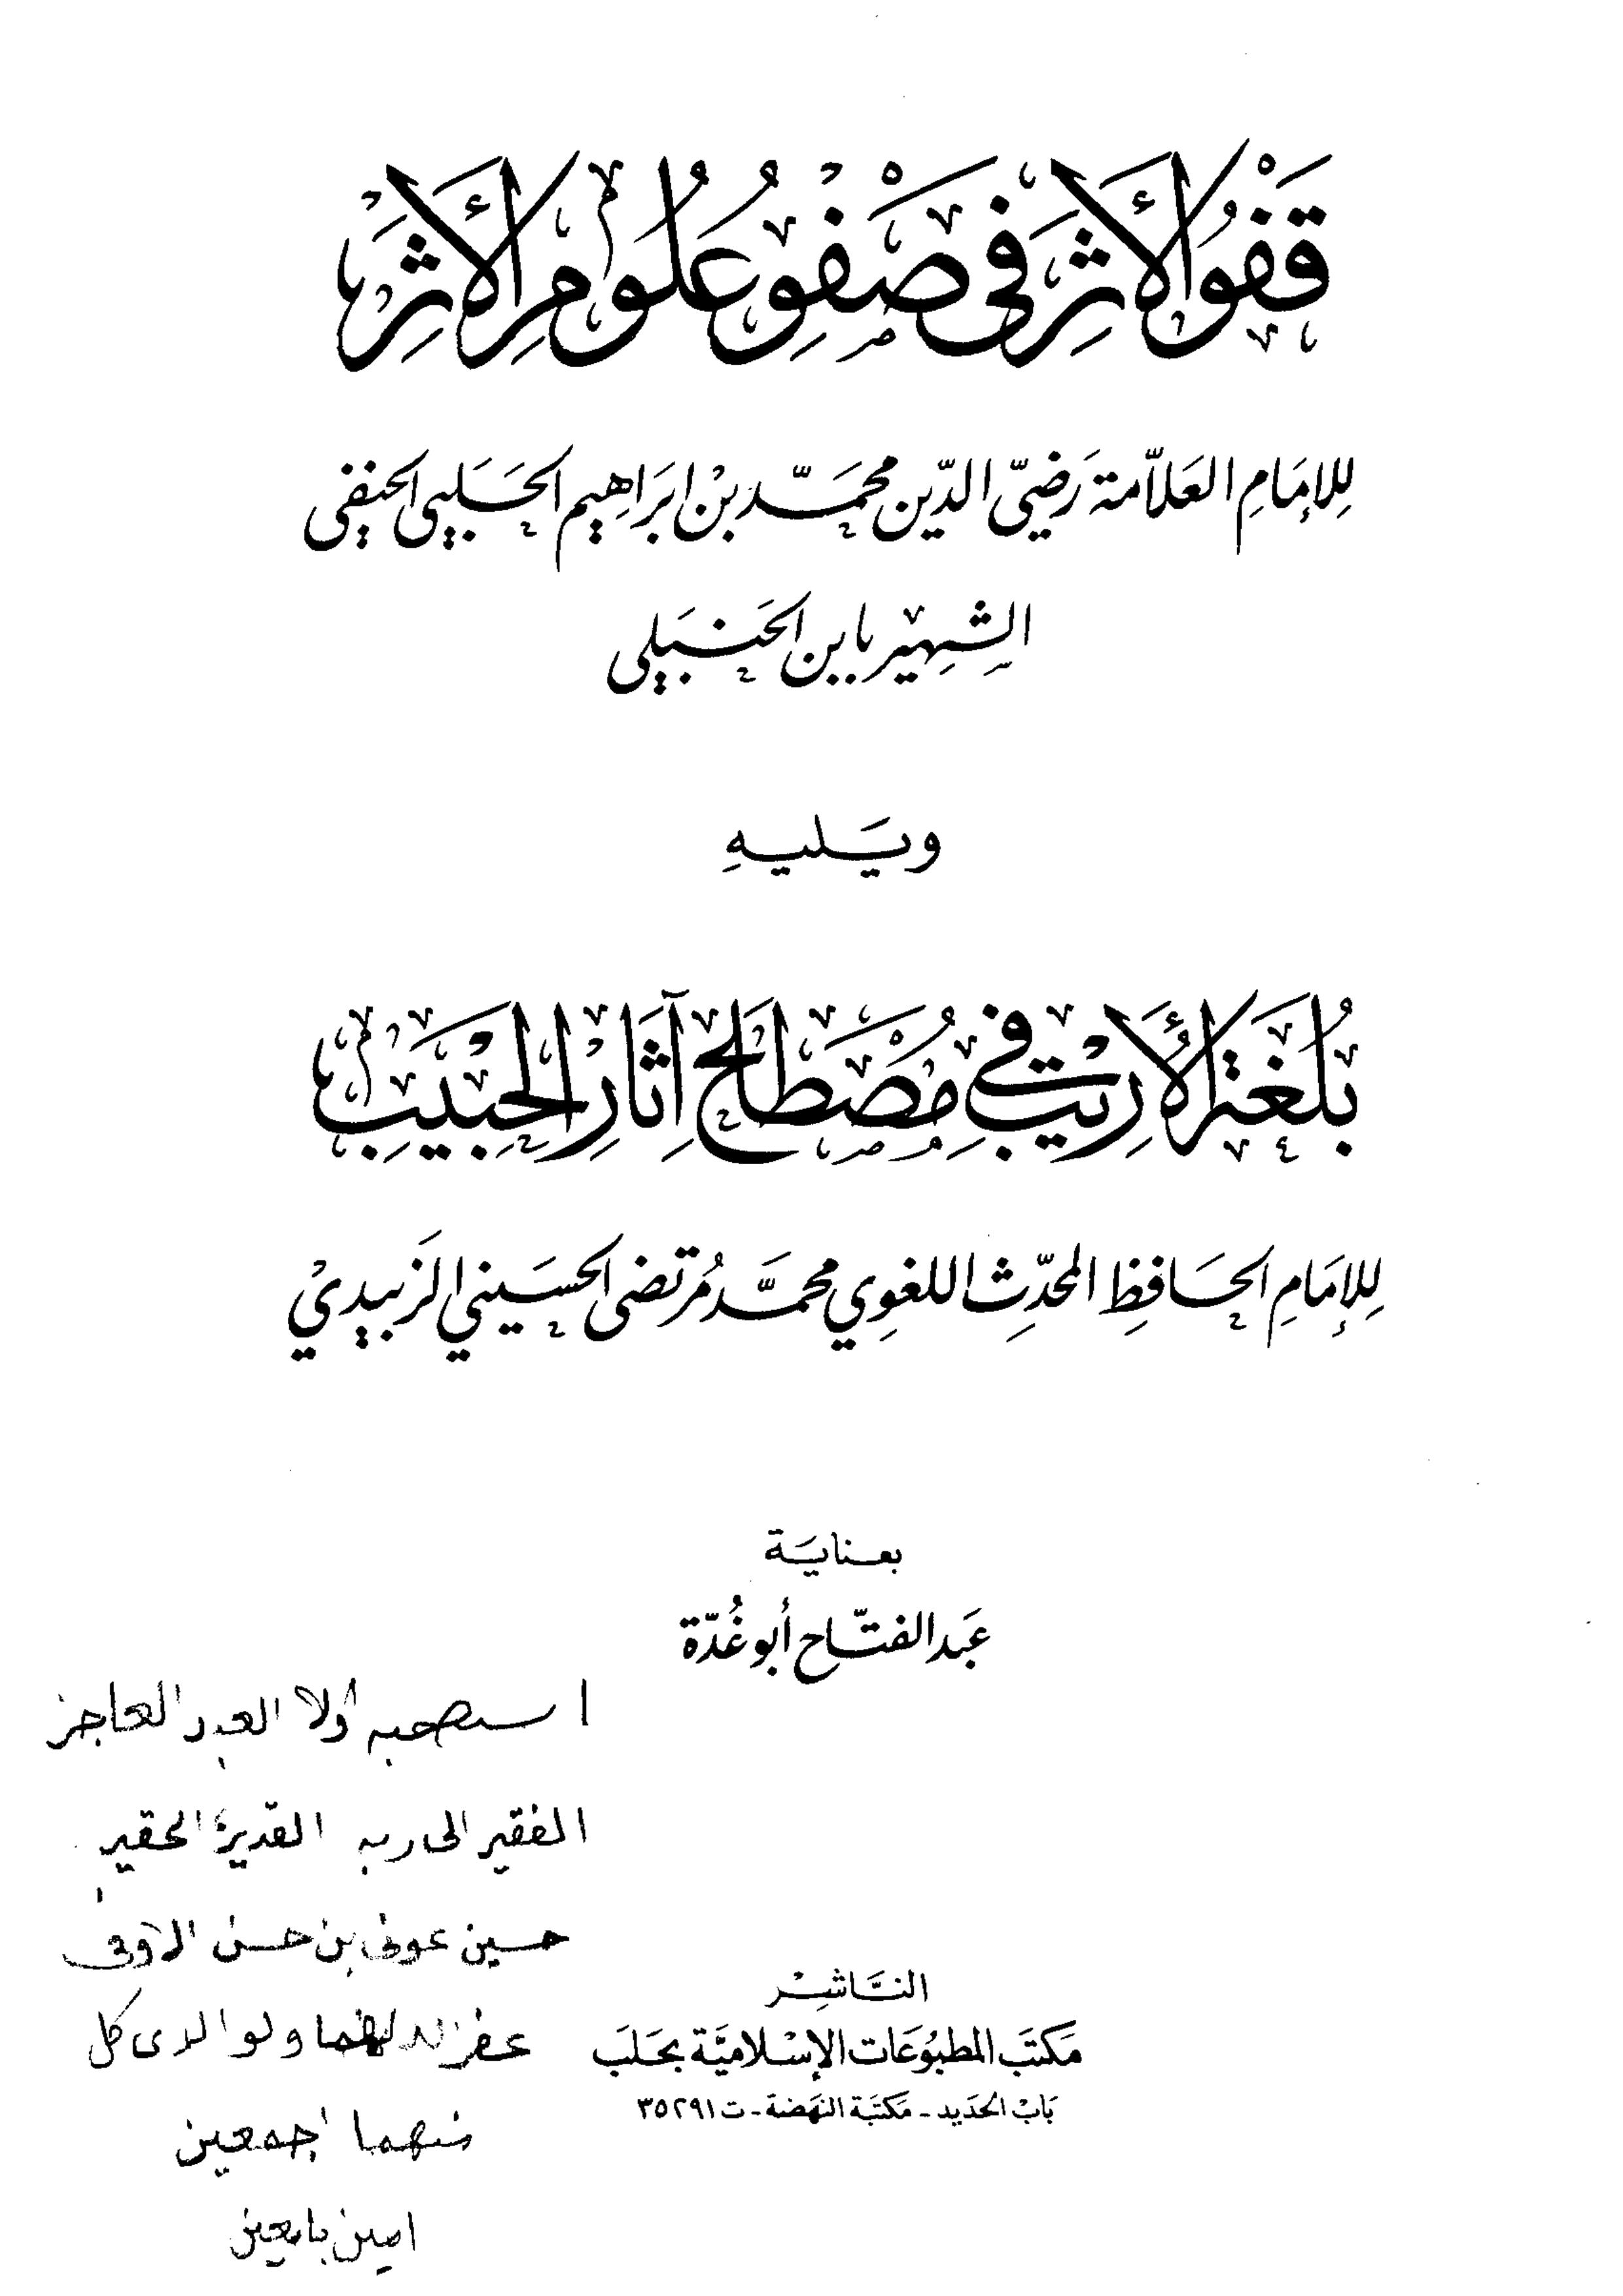 قَفْوُ الأَثَرِ فِي صَفْوِ عُلُومِ الأَثَرِ
لِلإمَامِ العَلاّمة رَضِيّ الدّين محمَّد بْن ابرَاهِيم الحَلَبي الحنفي
الشهِير بابن الحَنبَلي
وَيَليهِ
بُلْغَةُ الأَرِيبِ فِي مُصْطَلَحِ آثَارِ الحَبِيبِ
لِلإمَامِ الحَافِظِ المحدّث اللغوِي محمَّد مُرتضى الحسَيني الزَبيديْ
بعنايَة
عَبد الفتّاح أبو غُدّة
استصحبه أولا العبد العاجز
الفقير الى ربه القدير الحقير
حسين عونى بن حسن
غفر الله لهما ولوالدى كل
منهما اجمعين
امين
النَّاشِرْ
مَكتَب المطبُوعَات الإسْلاميَّة بحَلَبَ
بَابْ الحَديد - مَكتَبَة النَهضَة - ت ٣٥٢٩١